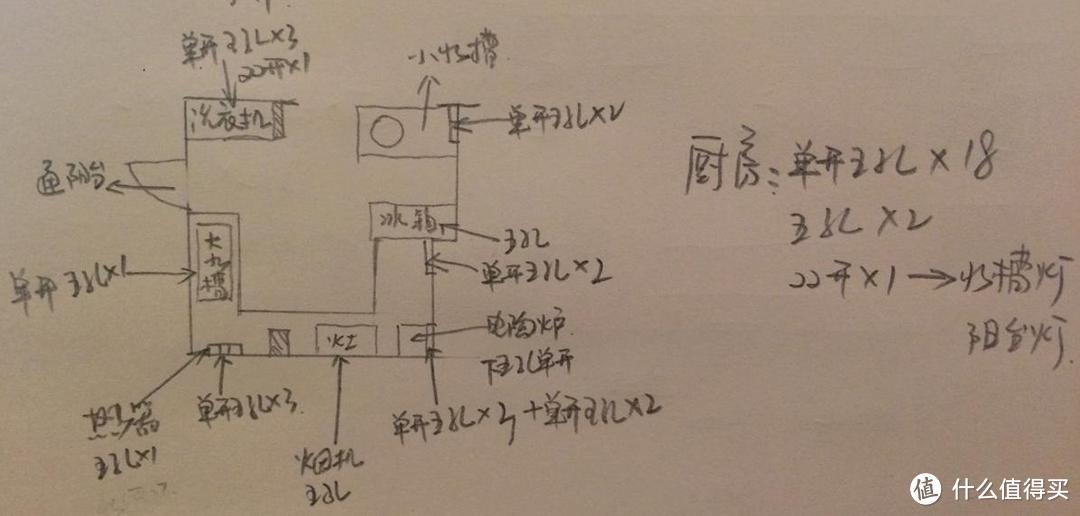 单开五孔×3
双开×1
小水槽
洗衣机
单开五孔×2
通阳台
冰箱
五孔
单开五孔×2
大水槽
单开五孔×1
灶
电陶炉
下五孔单开
热水器
五孔×1
单开五孔×3
烟机
五孔
单开五孔×3+单开五孔×2
厨房:单开五孔×18
五孔×2
双开×1→水槽灯
阳台灯
值 什么值得买